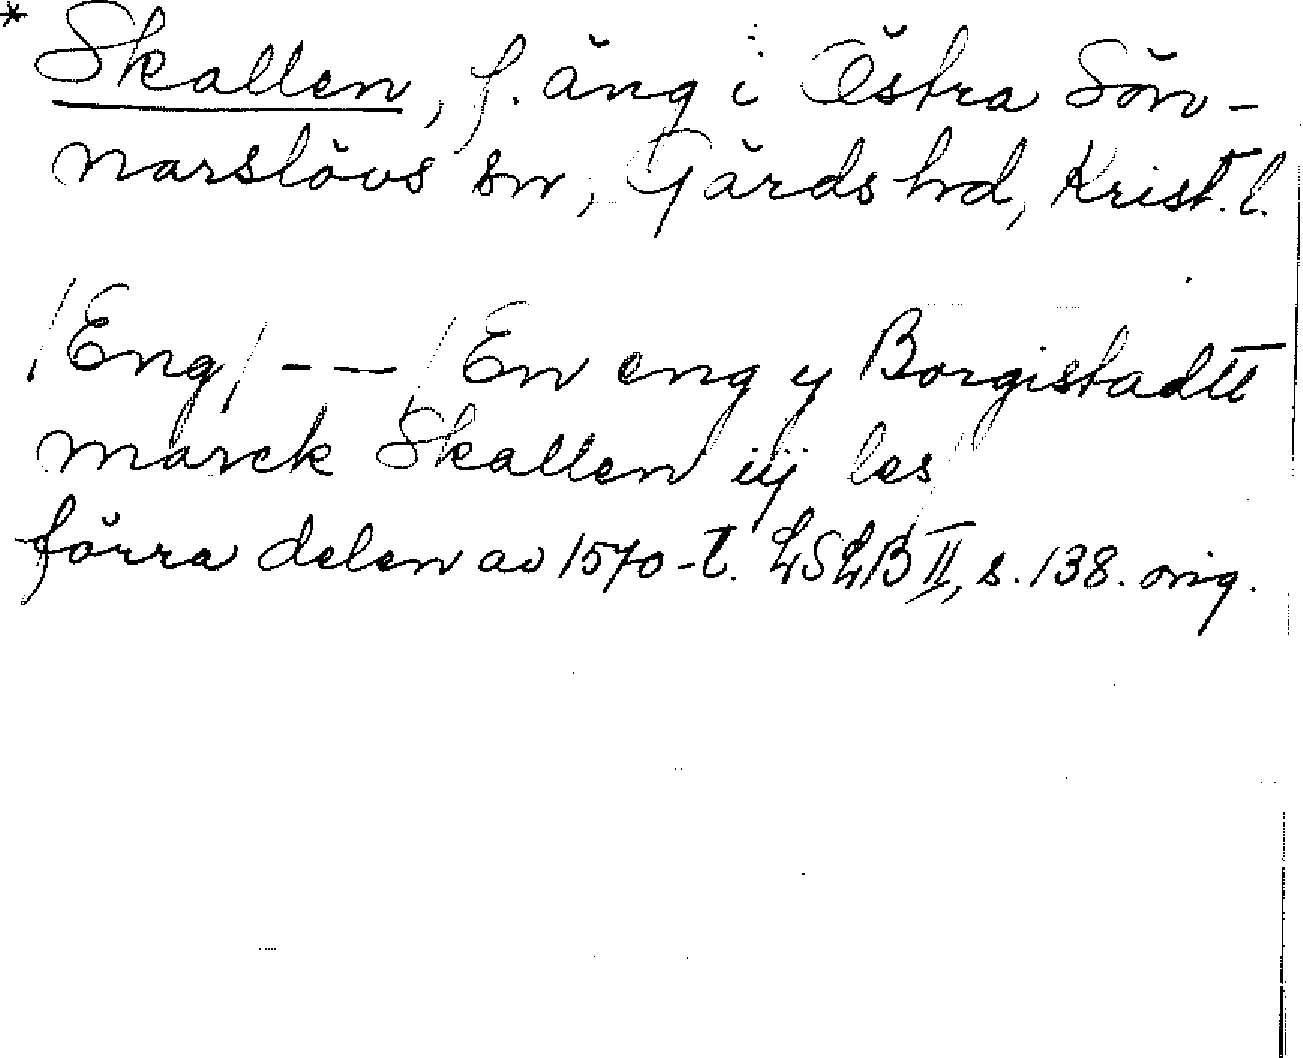 * Skallen, f. äng i Östra Sön-
narslövs sn, Gärds hd, Krist. l.
/Eng/ - - / En eng y Borgistadtt
marck Skallen iij les/
förra delen av 1570-t. LSLB II, s. 138. orig.